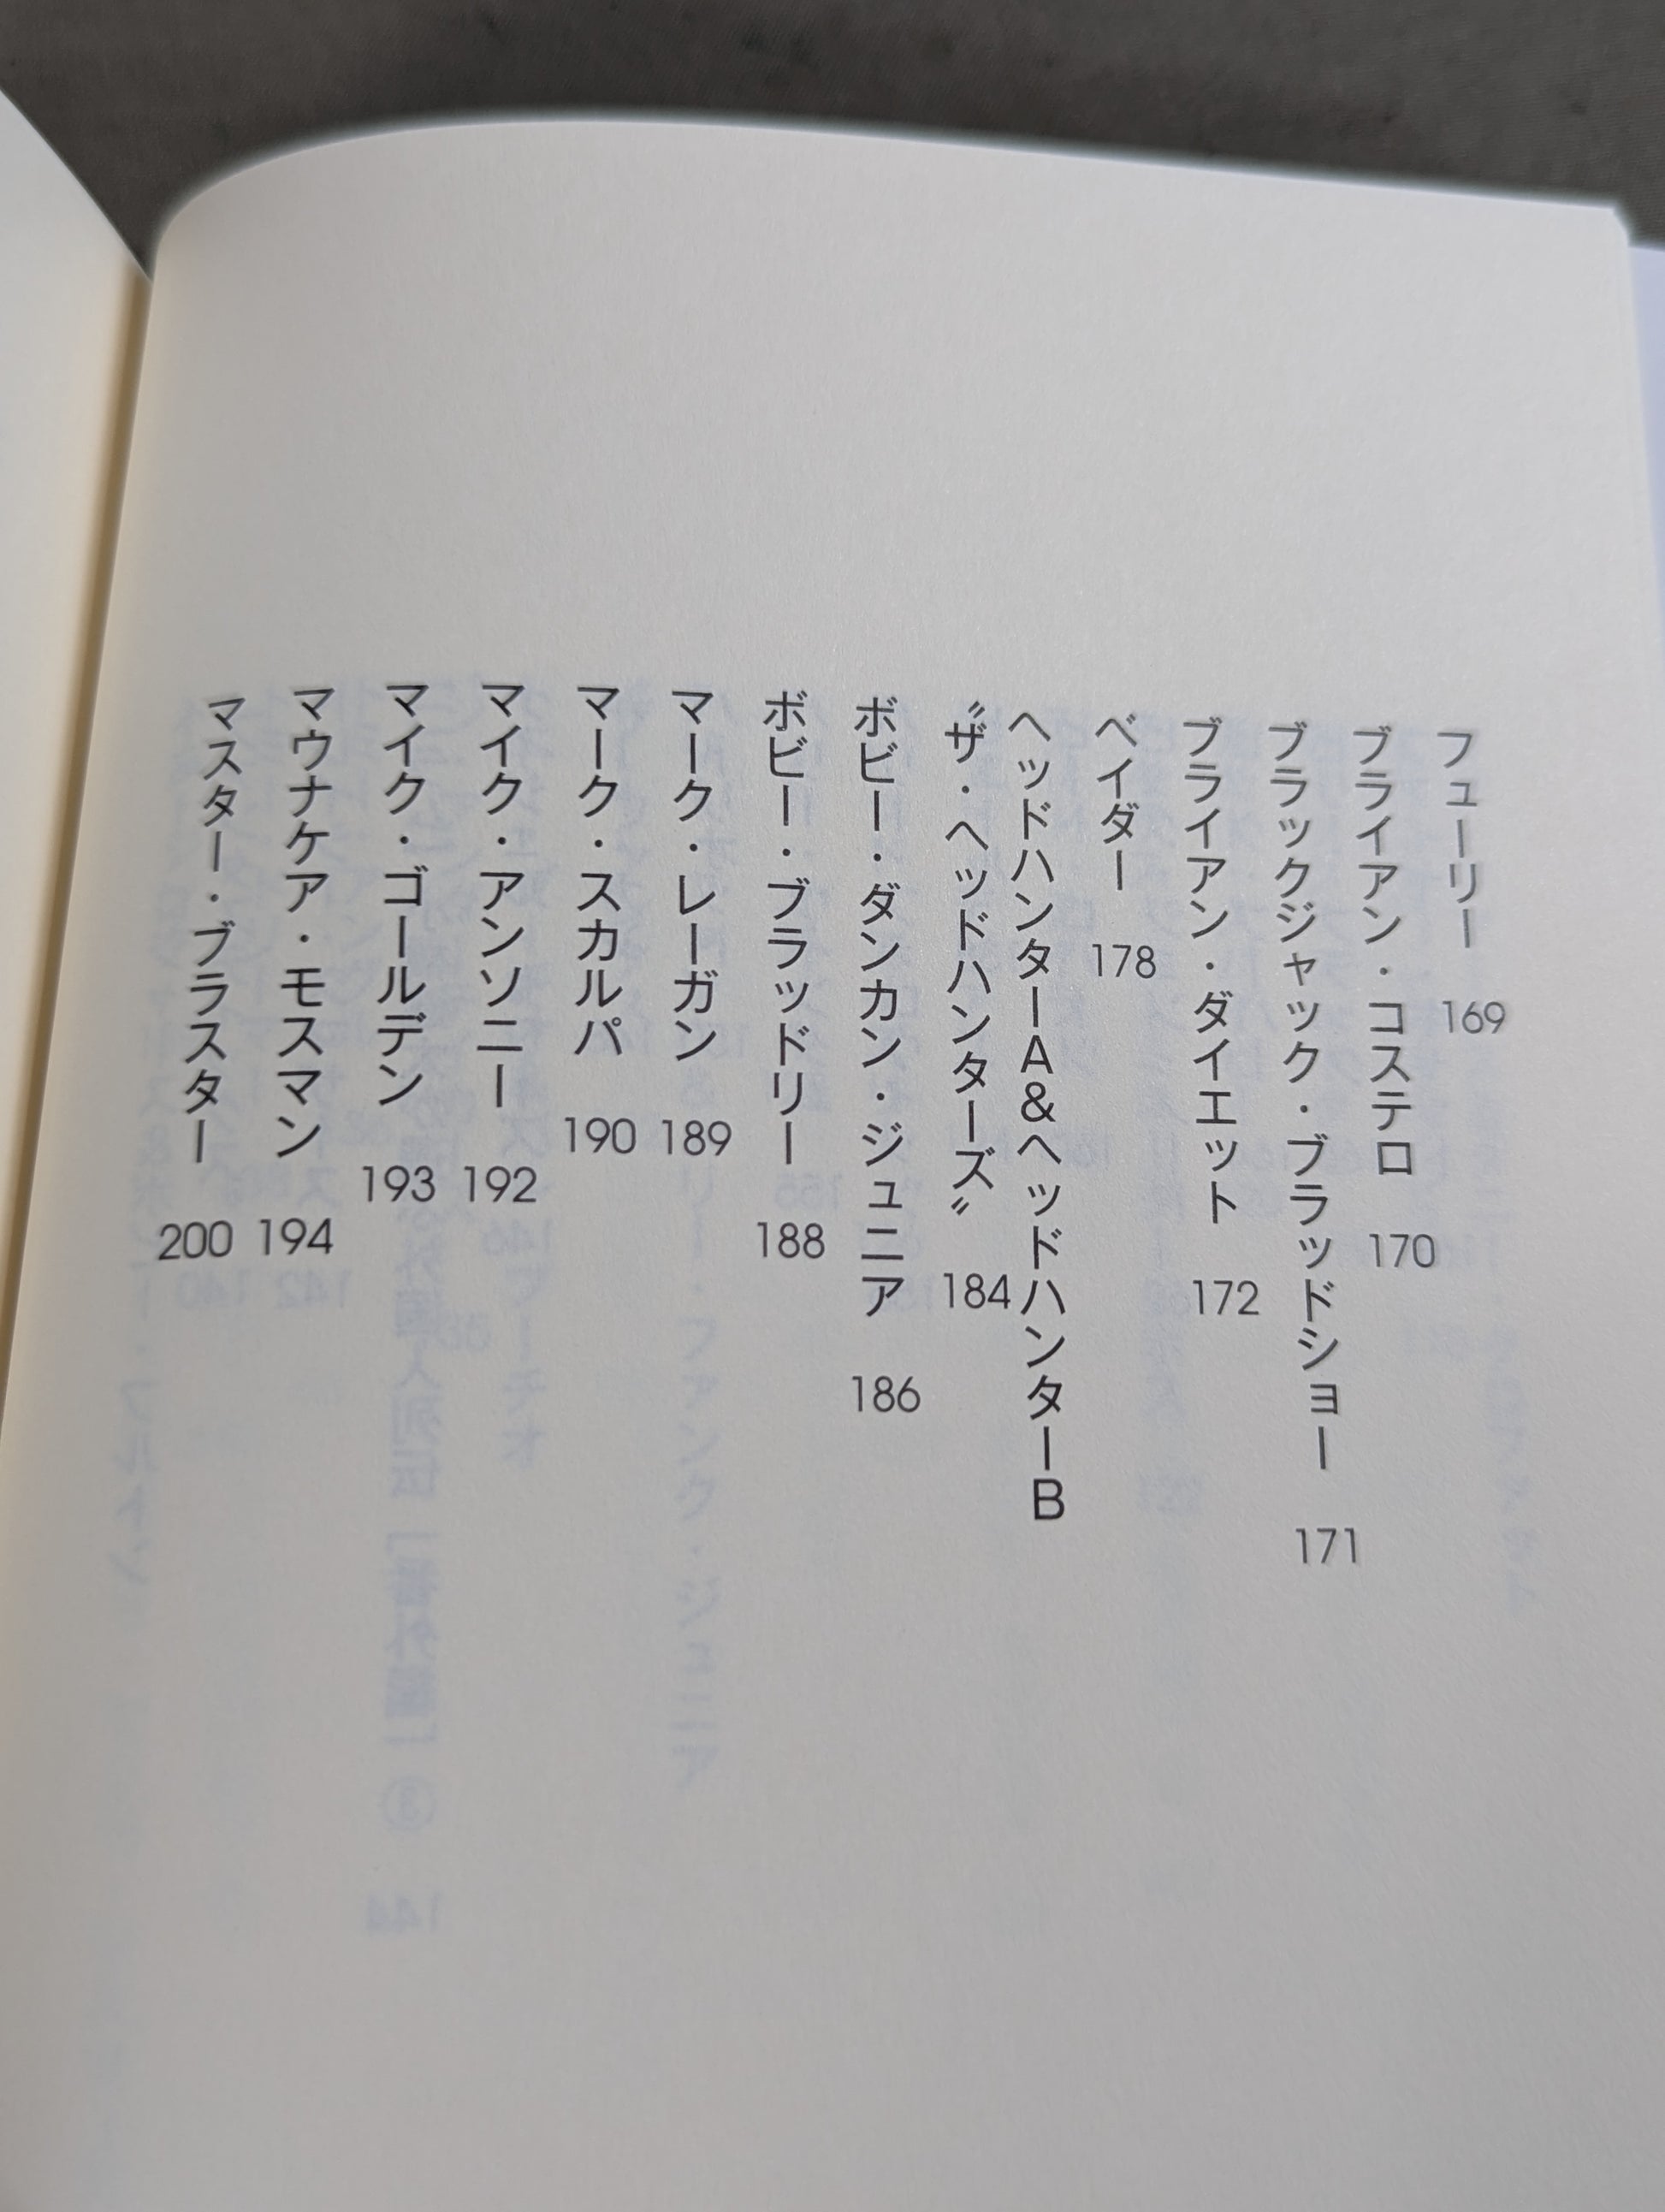 フューリー 169
ブライアン・コステロ 170
ブラックジャック・ブラッドショー 171
ブライアン・ダイエット 172
ベイダー 178
ヘッドハンターA&ヘッドハンターB
〝ザ・ヘッドハンターズ〟 184
ボビー・ダンカン・ジュニア 186
ボビー・ブラッドリー 188
マーク・レーガン 189
マーク・スカルパ 190
マイク・アンソニー 192
マイク・ゴールデン 193
マウナケア・モスマン 194
マスター・ブラスター 200